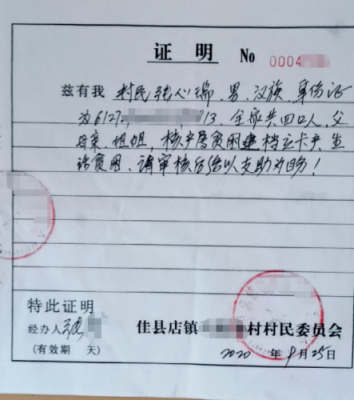 证 明 № 0004
兹有我 村民张心瑞、男、汉族、身份证
为6127 13. 全家共四口人, 父
母亲、姐姐, 核户属贫困建档立卡户, 生
活贫困、请审核后给以支助为盼!
特此证明
经办人
(有效期 天)
佳县店镇 村村民委员会
2020 年 8 月 25 日